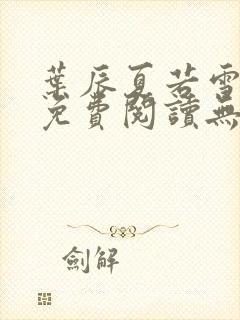 葉辰夏若雪
免費閱讀無
劍解